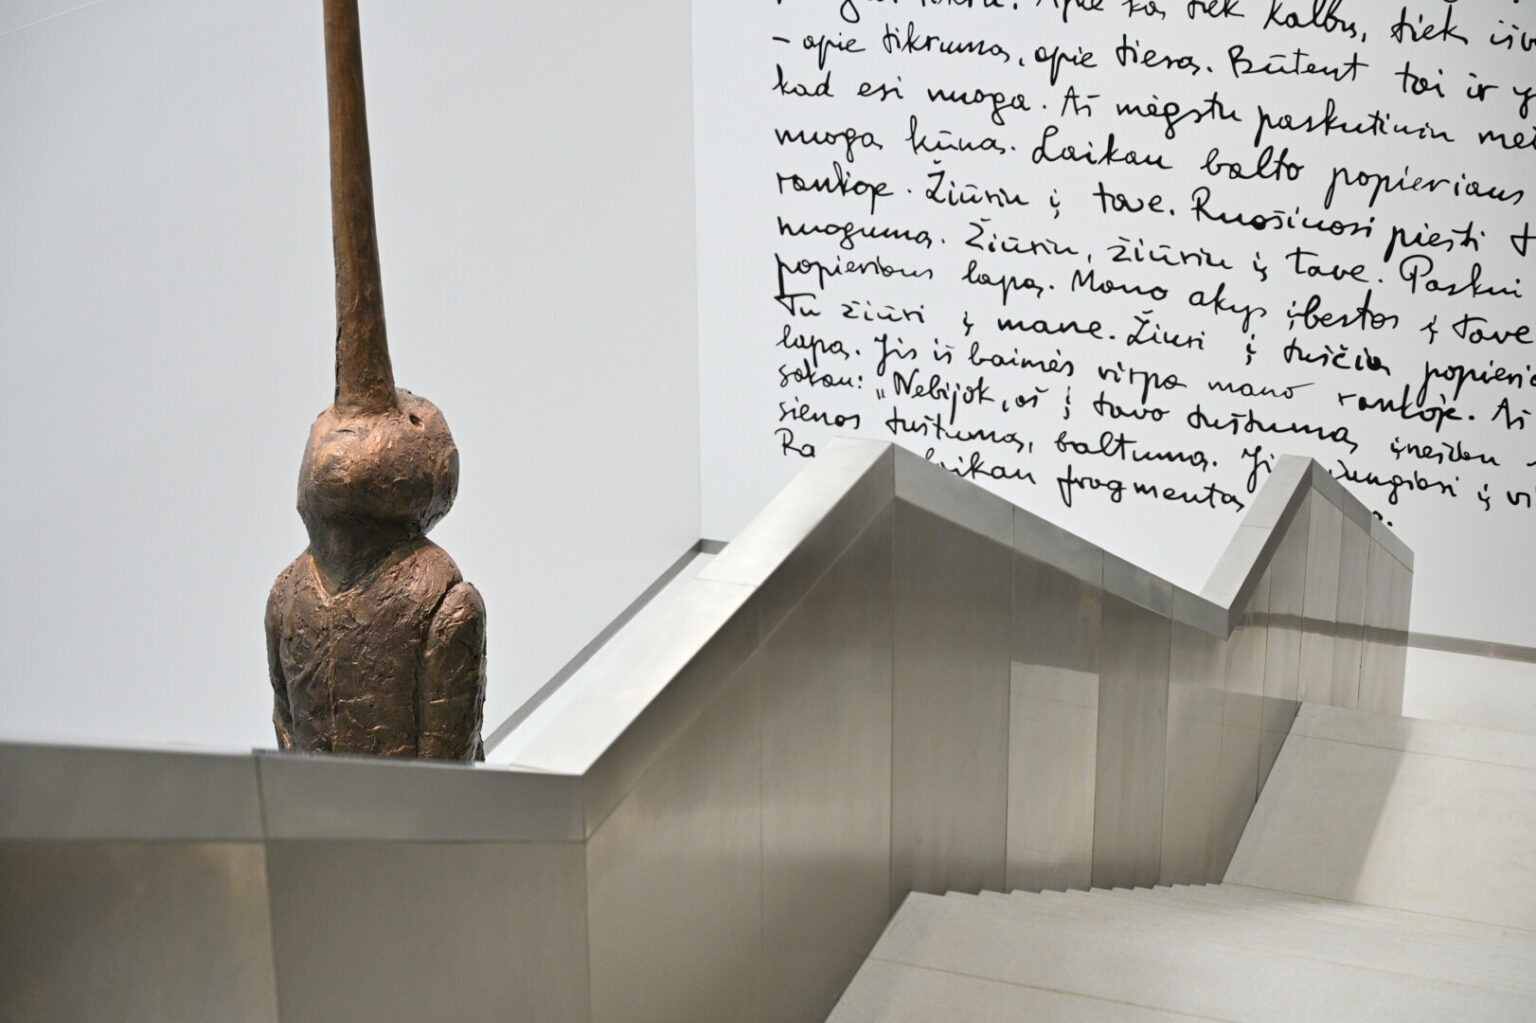 tikra. Apie ką tiek kalbu, tiek
– apie tikrumą, apie tiesą. Būtent tai ir
kad esi nuoga. Aš mėgstu paskutiniu
nuogą kūną. Laikau balto popieriaus
rankoje. Žiūriu į tave. Ruošiuosi piešti
nuogumą. Žiūriu, žiūriu į tave. Paskui
popieriaus lapą. Mano akys įbestos į tave
Tu žiūri į mane. Žiūri į tuščią popieriaus
lapą. Jis iš baimės virpa mano rankoje. Aš
sakau: „Nebijok, aš į tavo tuštumą įnešiu
sienos tuštumą, baltumą. Ji jungiasi į
Ra laikau fragmentą